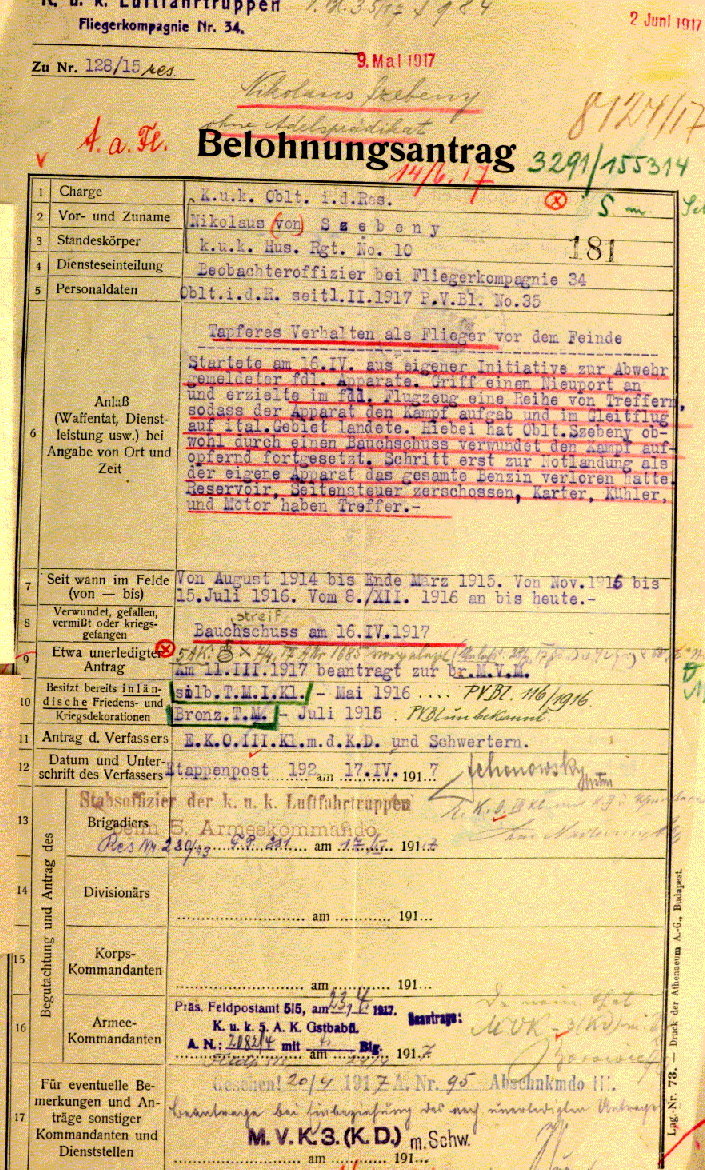 K. u. k. Luftfahrtruppen
Fliegerkompagnie Nr. 34.
2 Juni 1917
9. Mai 1917
Zu Nr. 128/15 res
Nikolaus Szebeny
ohne Adelsprädikat
8124/17
A. a. Fl.
Belohnungsantrag
3291/155314
14/6.17
1 Charge K.u.k. Oblt. i.d.Res.
2 Vor- und Zuname Nikolaus von Szebeny
3 Standeskörper k.u.k. Hus. Rgt. No. 10
181
4 Diensteseinteilung Beobachteroffizier bei Fliegerkompagnie 34
5 Personaldaten Oblt.i.d.R. seit1.II.1917 P.V.Bl. No.35
6 Anlaß
(Waffentat, Dienst-
leistung usw.) bei
Angabe von Ort und
Zeit
Tapferes Verhalten als Flieger vor dem Feinde
Startete am 16.IV. aus eigener Initiative zur Abwehr
gemeldeter fdl. Apparate. Griff einen Nieuport an
und erzielte im fdl. Flugzeug eine Reihe von Treffern,
sodass der Apparat den Kampf aufgab und im Gleitflug
auf ital.Gebiet landete. Hiebei hat Oblt.Szebeny ob-
wohl durch einen Bauchschuss verwundet den Kampf auf-
opfernd fortgesetzt. Schritt erst zur Notlandung als
der eigene Apparat das gesamte Benzin verloren hatte.
Reservoir, Seitensteuer zerschossen, Karter, Kühler,
und Motor haben Treffer.-
7 Seit wann im Felde
(von — bis)
Von August 1914 bis Ende März 1915. Von Nov.1915 bis
15.Juli 1916. Vom 8./XII. 1916 an bis heute.-
8 Verwundet, gefallen,
vermißt oder kriegs-
gefangen
streif
Bauchschuss am 16.IV.1917
9 Etwa unerledigter
Antrag
Am 11.III.1917 beantragt zur br.M.V.M.
10 Besitzt bereits inlän-
dische Friedens- und
Kriegsdekorationen
silb.T.M.I.Kl. - Mai 1916 .... P.V.Bl. 116/1916
Bronz.T.M. - Juli 1915 . PVBl unbekannt
11 Antrag d. Verfassers E.K.O.III.Kl.m.d.K.D. und Schwertern.
12 Datum und Unter-
schrift des Verfassers
Etappenpost 192 am 17.IV. 1917
Begutachtung und Antrag des
13 Brigadiers
Stabsoffizier der k. u. k. Luftfahrtruppen
beim 5. Armeekommando
am 191
14 Divisionärs
am 191
15 Korps-
Kommandanten
am 191
16 Armee-
Kommandanten
Präs. Feldpostamt 515, am 23.4. 1917.
Beantrage:
K. u. k. 5. A. K. Gstbabt.
A. N.: mit Blg.
am 1917
17 Für eventuelle Be-
merkungen und An-
träge sonstiger
Kommandanten und
Dienststellen
Gesehen! 20/4 1917 A. Nr. 95 Abschnkmdo III.
M.V.K.3.(K.D.) m.Schw.
am 191
Lag.-Nr. 73. — Druck der Athenaeum A.-G., Budapest.